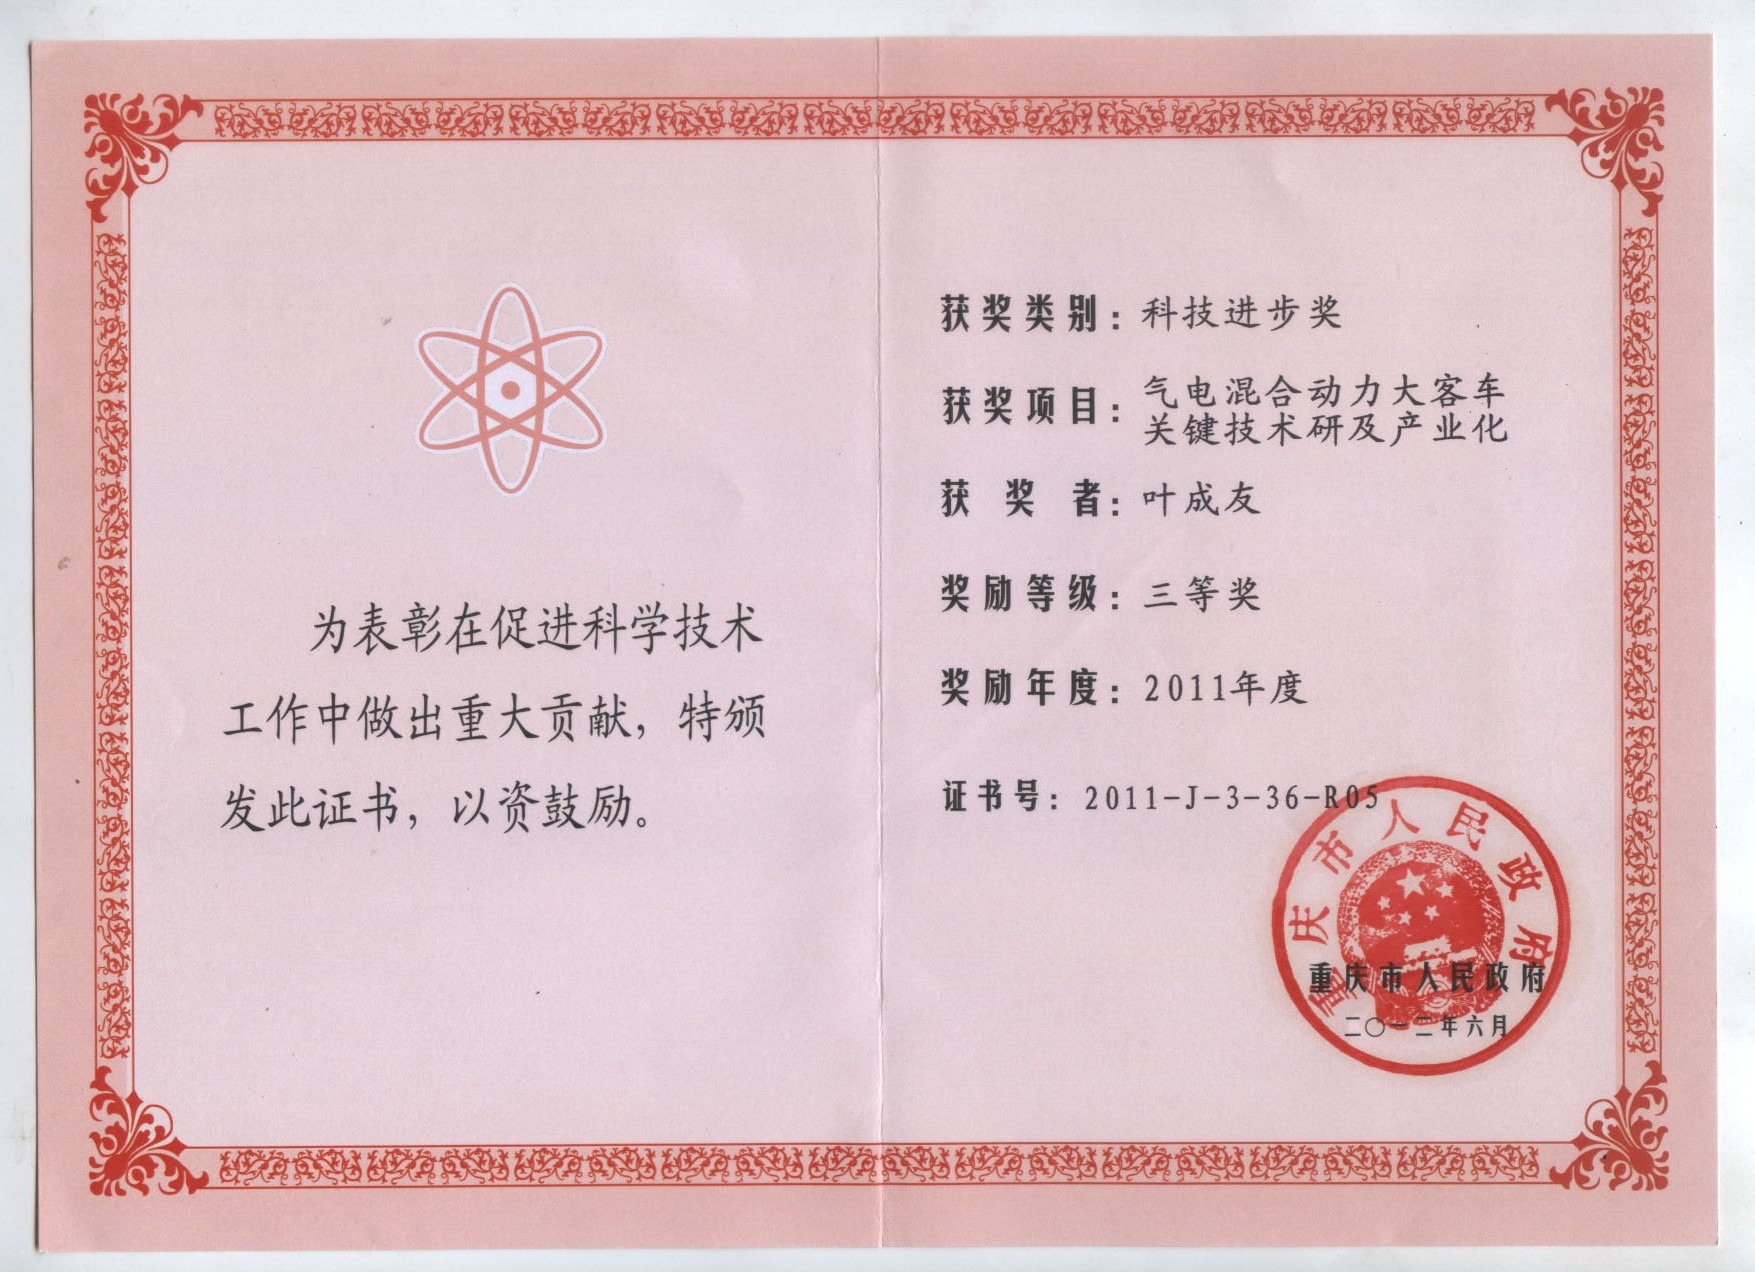 为表彰在促进科学技术
工作中做出重大贡献，特颁
发此证书，以资鼓励。
获奖类别：科技进步奖
获奖项目：气电混合动力大客车
关键技术研及产业化
获奖者：叶成友
奖励等级：三等奖
奖励年度：2011年度
证书号：2011-J-3-36-R05
重庆市人民政府
重庆市人民政府
二〇一二年六月